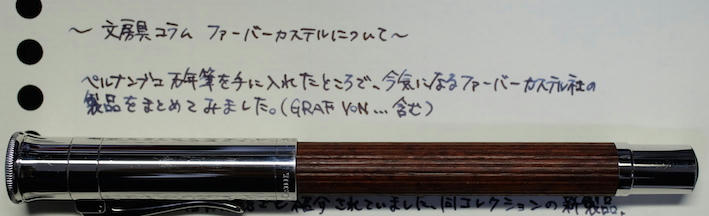 ～ 文房具コラム ファーバーカステルについて～
ペルナンブコ万年筆を手に入れたところで、今気になるファーバーカステル社の
製品をまとめてみました。(GRAF VON... 含む)
介されていました、同コレクションの新製品